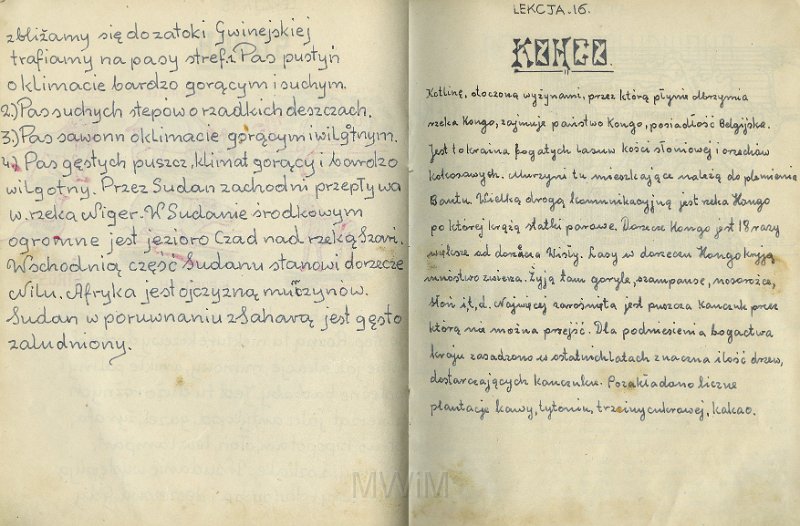 zbliżamy się do zatoki Gwinejskiej
trafiamy na pasy stref. 1. Pas pustyń
o klimacie bardzo gorącym i suchym.
2.) Pas suchych stepów o rzadkich deszczach.
3.) Pas sawonn o klimacie gorącym i wilgotnym.
4.) Pas gęstych puszcz, klimat gorący i bardzo
wilgotny. Przez Sudan zachodni przepływa
w. rzeka Niger. W Sudanie środkowym
ogromne jest jezioro Czad nad rzeką Szari.
Wschodnią część Sudanu stanowi dorzecze
Nilu. Afryka jest ojczyzną murzynów.
Sudan w poruwnaniu z Saharą jest gęsto
zaludniony.
LEKCJA. 16.
KONGO.
Kotlinę, otoczoną wyżynami, przez którą płynie olbrzymia
rzeka Kongo, zajmuje państwo Kongo, posiadłość Belgijska.
Jest to kraina bogatych lasuw kości słoniowej i orzechów
kokosowych. Murzyni tu mieszkające należą do plemienia
Bantu. Wielką drogą komunikacyjną jest rzeka Kongo
po której krążą statki parowe. Dorzecze Kongo jest 18 razy
większe od dorzecza Wisły. Lasy w dorzeczu Kongo kryją
mnóstwo zwierza. Żyją tam goryle, szympanse, nosorożce,
słoń i, t, d. Najwięcej zarośnięta jest puszcza kauczuk przez
którą na można przejść. Dla podniesienia bogactwa
kraju zasadzono w ostatnich latach znaczna ilość drzew,
dostarczających kauczuku. Pozakładano liczne
plantacje kawy, tytoniu, trzciny cukrowej, kakao.
MWiM